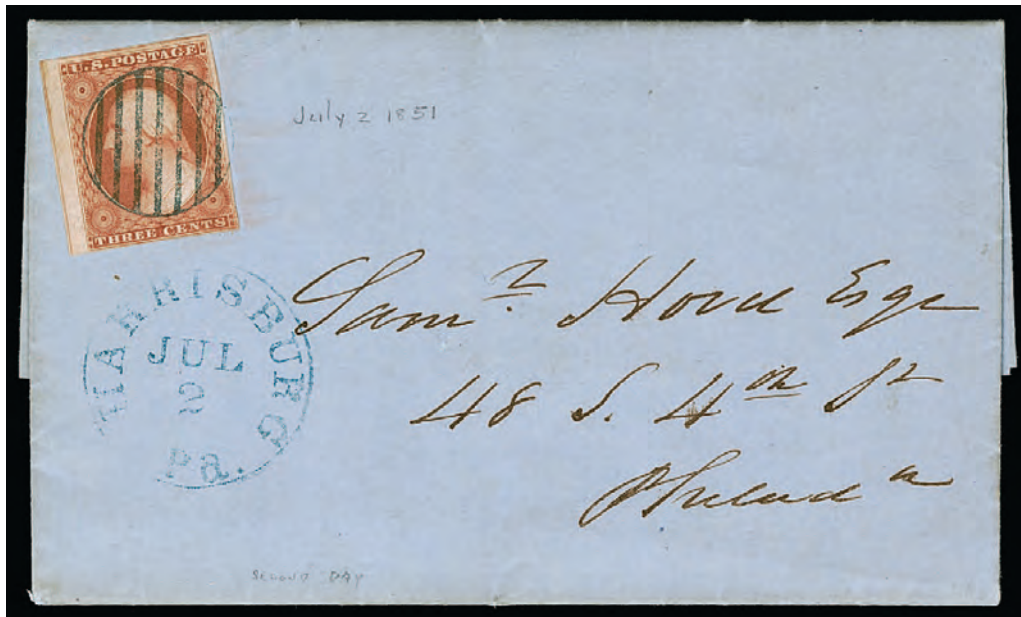 U.S.POSTAGE
THREE CENTS
July 2 1851
HARRISBURG Pa.
JUL
2
Saml. Hood Esqr
48 S. 4th St
Philada
SECOND DAY